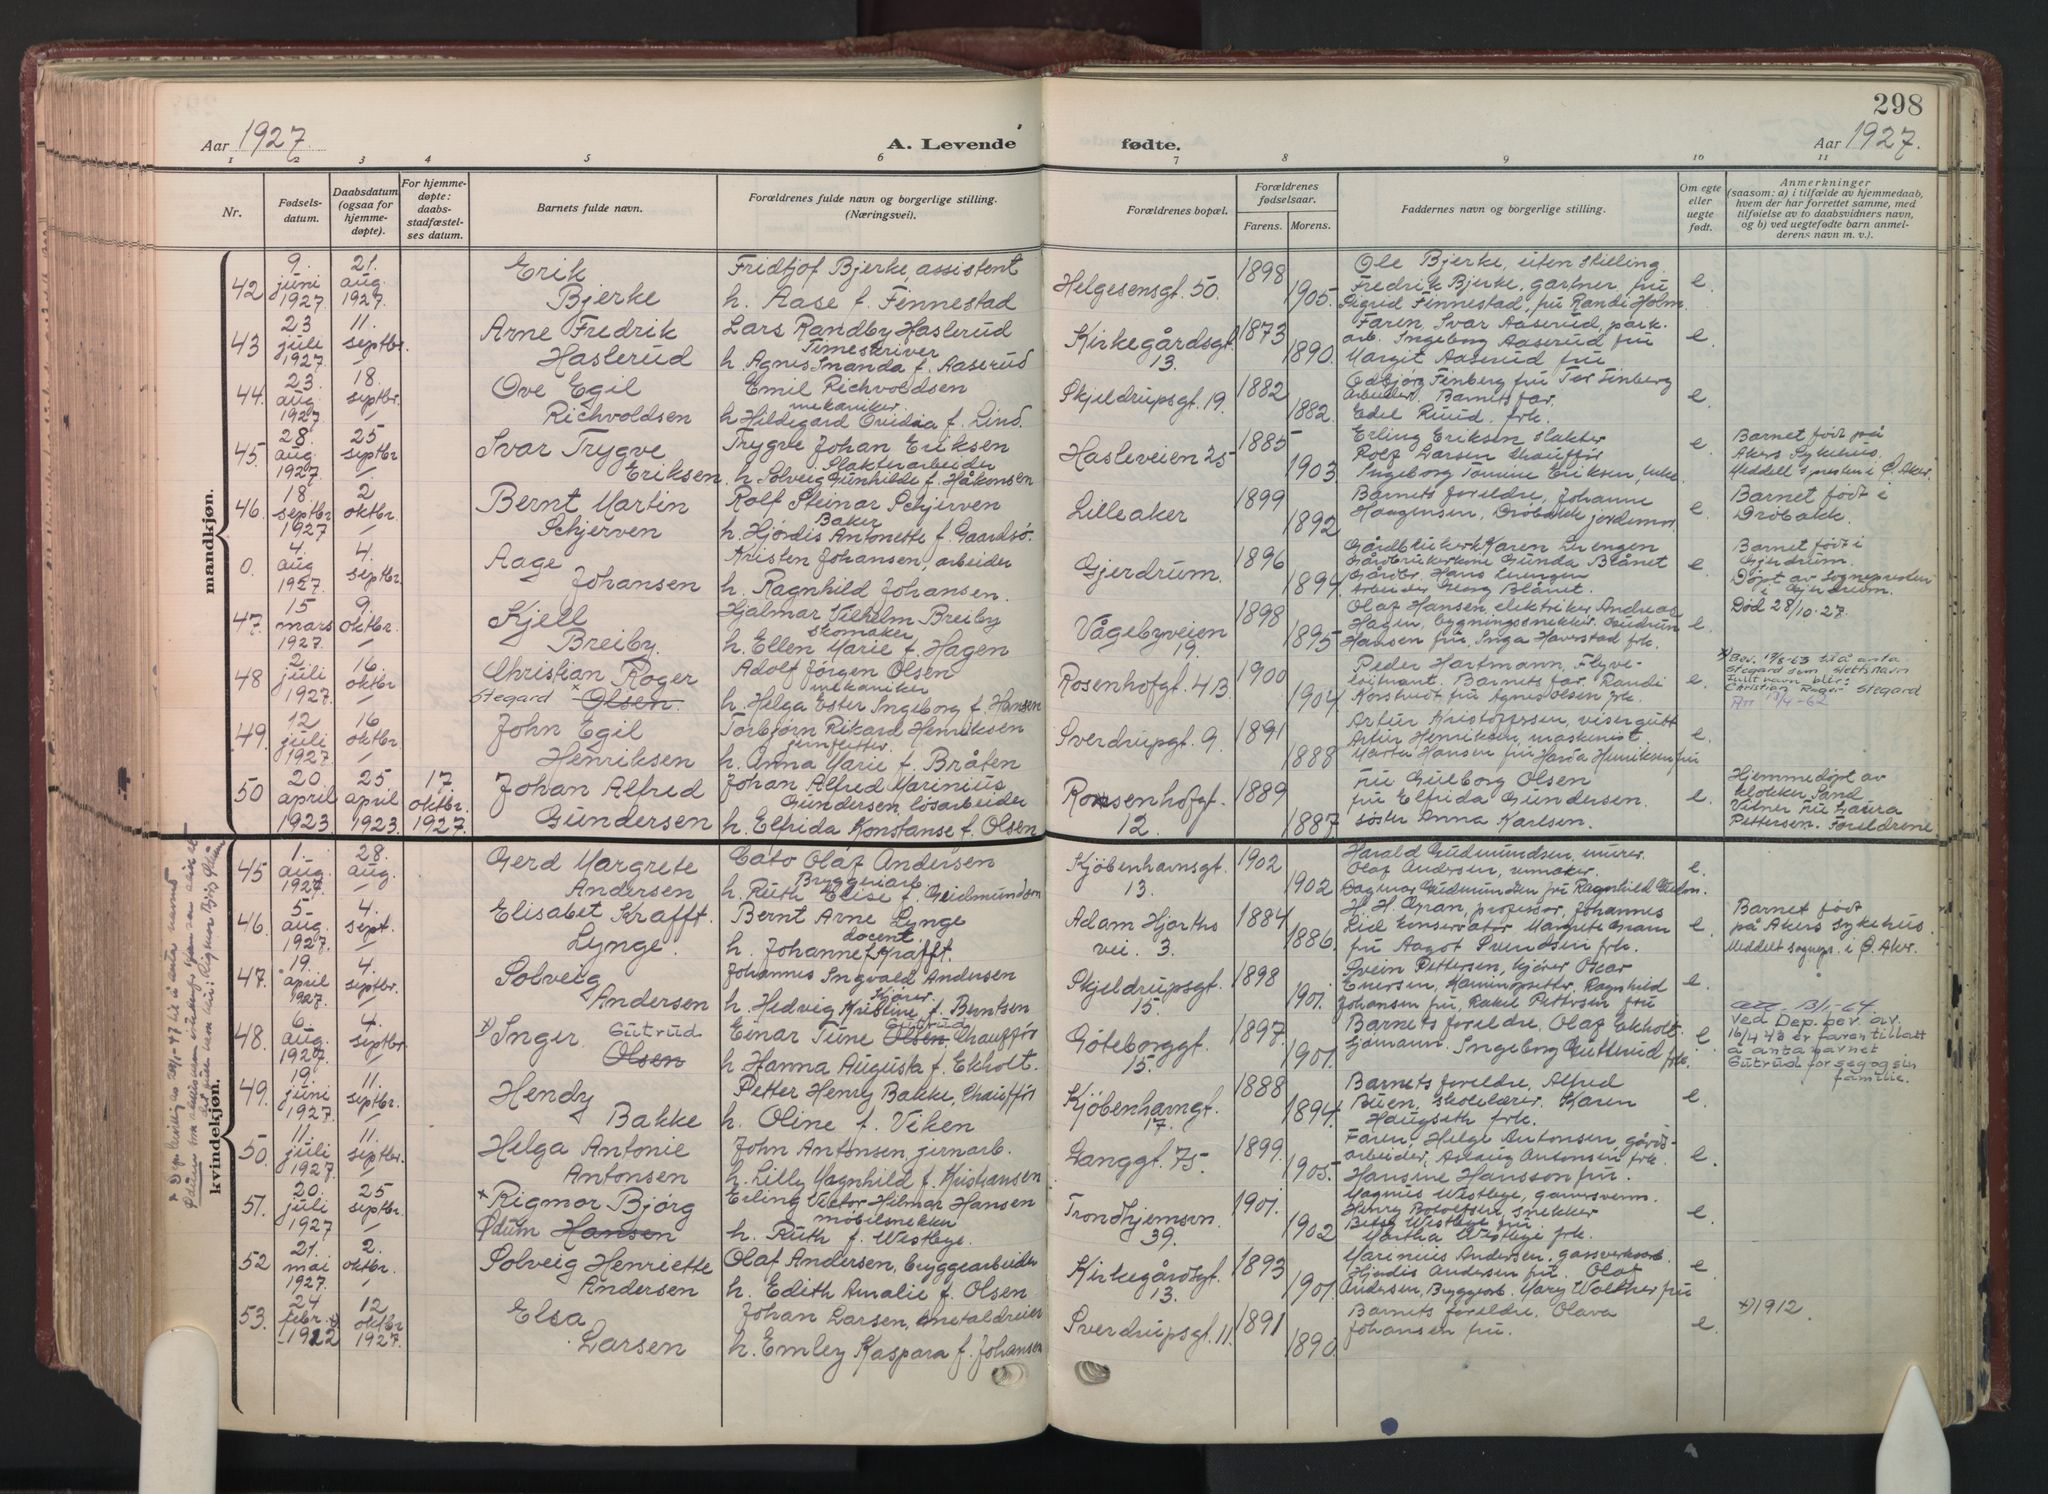 298
Aar 1927.
A. Levende
fødte.
Aar 1927.
1 2 3 4 5 6 7 8 9 10 11
Nr.
Fødsels-
datum.
Daabsdatum
(ogsaa for
hjemme-
døpte).
For hjemme-
døpte:
daabs-
stadfæstel-
ses datum.
Barnets fulde navn.
Forældrenes fulde navn og borgerlige stilling.
(Næringsvei).
Forældrenes bopæl.
Forældrenes
fødselsaar.
Farens.
Morens.
Faddernes navn og borgerlige stilling.
Om egte
eller
uegte
født.
Anmerkninger
(saasom: a) i tilfælde av hjemmedaab,
hvem der har forrettet samme, med
tilføielse av to daabsvidners navn,
og b) ved uegtefødte barn anmel-
derens navn m. v.).
mandkjøn.
42
9.
juni
1927.
21.
aug.
1927.
Erik
Bjerke
Fridtjof Bjerke, assistent
h. Aase f. Finnestad
Helgesensgt. 50.
1898
1905.
Ole Bjerke, uten stilling.
Fredrik Bjerke, gartner, fru
Sigrid Finnestad, fru Randi Holm
e.
43
23
juli
1927
11.
septbr.
Arne Fredrik
Haslerud
Lars Randby Haslerud
Timeskriver
h. Agnes Smanda f. Aaserud
Kirkegårdsgt.
13.
1873
1890.
Faren, Ivar Aaserud, park.
arb. Ingeborg Aaserud fru
Margit Aaserud fru
e.
44.
23.
aug
1927
18.
septbr.
Ove Egil
Richvoldsen
Emil Richvoldsen
mekaniker.
h Hildegard Ovidia f. Lind.
Skjeldrupsgt. 19.
1882
1882.
Odbjørg Finberg fru Tor Finberg
arbeider. Barnets far.
Edel Ruud. frk.
e.
45.
28.
aug
1927.
25
septbr
Ivar Trygve
Eriksen
Trygve Johan Eriksen
Slakterarbeider
h. Solveig Gunhilde f. Håkonsen
Hasleveien 25
1885
1903
Erling Eriksen slakter
Rolf Larsen Chauffør
Ingeborg Tomine Eriksen, enke.
e
Barnet født på
Akers Sykehus.
Meddelt sognepresten i Ø. Aker.
46.
18.
septbr
1927
2
oktbr.
Bernt Martin
Schjerven
Rolf Steinar Schjerven
Baker
h. Hjørdis Antonette f. Gaardsø.
Lilleaker
1899
1892
Barnets foreldre, Johanne
Haagensen, Drøbakk jordemor
e.
Barnet født i
Drøbakk.
0.
4.
aug
1927.
4.
septbr.
Aage
Johansen
Kristen Johansen, arbeider
h. Ragnhild Johansen.
Gjerdrum.
1896
1894.
Gårdbrukerk Karen Luengen
Gårdbrukerkone Gunda Blånet
Gårdbr. Hans Luengen
arbeider Georg Blånet.
e.
Barnet født i
Gjerdrum.
Døpt av sognepresten
i Gjerdrum.
47.
15
mars
1927.
9.
oktbr.
Kjell
Breiby.
Hjalmar Vilhelm Breiby
skomaker
h. Ellen Marie f. Hagen
Vågebyveien
19.
1898
1895
Olaf Hansen, elektriker Andreas
Hagen, bygningssnekker. Gudrun
Hansen fru Inga Haverstad frk.
e.
Død 28/10-27.
48
2.
juli
1927.
16.
oktbr
Christian Roger
Stegard × Olsen.
Adolf Jørgen Olsen
mekaniker
h. Helga Ester Ingeborg f. Hansen
Rosenhofgt. 4B.
1900
1904
Peder Hartmann, Flyve-
løitnant. Barnets far. Randi
Konstvedt fru Agnes Olsen frk.
e.
×) Bev. 19/8-63 til å anta
Stegard som slektsnavn
Fullt navn blir:
Christian Roger Stegard
49.
12
juli
1927.
16
oktbr.
John Egil
Henriksen
Torbjørn Rikard Henriksen
h. Anna Marie f. Bråten
Sverdrupsgt. 9.
1891
1888
Artur Kristoffersen, visergutt
Artur Henriksen, maskinist
Marta Hansen fru Harda Henriksen fru
e.
50
20.
april
1923
25
april
1923.
17.
oktbr.
1927.
Johan Alfred
Gundersen
Johan Alfred Marinius
Gundersen, løsarbeider
h. Elfrida Konstanse f. Olsen
Rosenhofgt.
12.
1889
1887
fru Gulborg Olsen
fru Elfrida Gundersen.
søster Anna Karlsen.
e.
Hjemmedøpt av
klokker Sand
Vitner fru Laura
Pettersen. Foreldrene
kvindekjøn.
45
1.
aug.
1927.
28.
aug.
Gerd Margrete
Andersen
Cato Olaf Andersen
Bryggeriarb.
h. Ruth Elise f. Gudmundsen
Kjøbenhavnsgt.
13.
1902
1902
Harald Gudmundsen, murer.
Olaf Andersen, urmaker.
Dagmar Gudmundsen fru Ragnhild Gudm.
e.
46.
5.
aug.
1927.
4.
sept.
Elisabet Krafft.
Lynge.
Bernt Arne Lynge
docent.
h. Johanne f. Krafft.
Adam Hjorths
vei. 3.
1884
1886.
H. H. Gran, professor, Johannes
Lid konservator Margrete Gram
fru Aagot Svendsen frk.
e.
Barnet født
på Akers Sykehus.
Meddelt sognepr. i Ø. Aker.
47.
19.
april
1927.
4.
septbr.
Solveig
Andersen
Johannes Ingvald Andersen
Kjører
h. Hedvig Kristine f. Berntsen
Skjeldrupsgt.
15.
1898
1901.
Svein Pettersen, kjører Oscar
Enersen, Kaminopsetter, Ragnhild
Johansen fru, Rakel Pettersen fru
e.
48.
6.
aug.
1927.
4.
septbr.
×) Inger Gutrud
Olsen
Einar Tune Olsen, Gutrud Chauffør
h. Hanna Augusta f. Ekholt.
Gøteborggt.
15.
1897.
1901.
Barnets foreldre, Olaf Ekholt
sjømann. Ingeborg Gutterud frk.
e
att 13/1-64.
Ved Dep. bev. av
16/4 43 er faren tillatt
å anta navnet
Gutrud for seg og sin
familie.
49.
19.
juni
1927.
11.
septbr.
Hendy
Bakke
Petter Henry Bakke, Chauffør
h. Oline f. Viken
Kjøbenhavngt.
17.
1888
1894.
Barnets foreldre, Alfred
Buen, skolelærer. Karen
Haugseth frk.
e.
50.
11.
juli
1927.
11.
septbr.
Helga Antonie
Antonsen
John Antonsen, jernarb.
h. Lilly Magnhild f. Kristiansen
Langgt. 75.
1899.
1905.
Faren, Helge Antonsen, gårds-
arbeider, Aslaug Antonsen frk.
Hansine Hansson fru.
e.
51.
20.
juli
1927
25
septbr
× Rigmor Bjørg
Ødum Hansen
Erling Victor Hilmar Hansen
møbelsnekker
h. Ruth f. Westbye.
Trondhjemsvn.
39.
1901.
1902
Magnus Westbye, garversvenn.
Henry Botolfsen, snekker
Betsy Westbye fru
Martha Westbye frk.
e.
52
21.
mai
1927.
2.
oktbr.
Solveig Henriette
Andersen
Olaf Andersen, bryggearbeider
h. Edith Amalie f. Olsen
Kirkegårdsgt.
13.
1893
1901.
Marinius Andersen, gassverksarb.
Hjørdis Andersen fru. Olaf
Andersen, Bryggearb. Mary Walther fru
e.
53.
24
febr. ×)
1922
12
oktbr
1927.
Elsa
Larsen
Johan Larsen, metaldreier
h. Emley Kaspara f. Johansen
Sverdrupsgt. 11.
1891
1890.
Barnets foreldre, Olava
Johansen fru.
e.
×) 1912